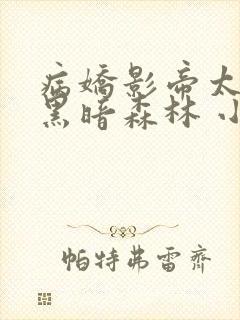 病嬌影帝太
黑暗森林 小
帕特弗雷齊